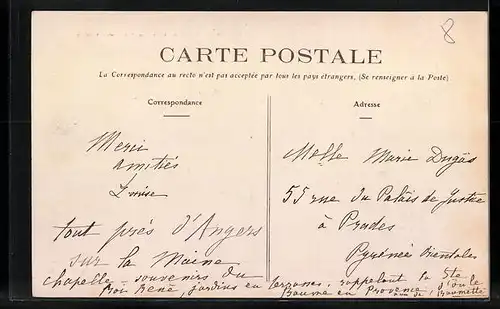 8
CARTE POSTALE
La Correspondance au recto n'est pas acceptée par tous les pays étrangers, (Se renseigner à la Poste)
Correspondance
Merci
amitiés
Louise
tout près d'Angers
sur la Maine
chapelle - souvenirs du
Roi René, jardins en terrasses, rappelant la Ste
Baume en Provence, d'où le
nom de Baumette
Adresse
Melle Marie Dugas
55 rue du Palais de Justice
à Prades
Pyrénées Orientales